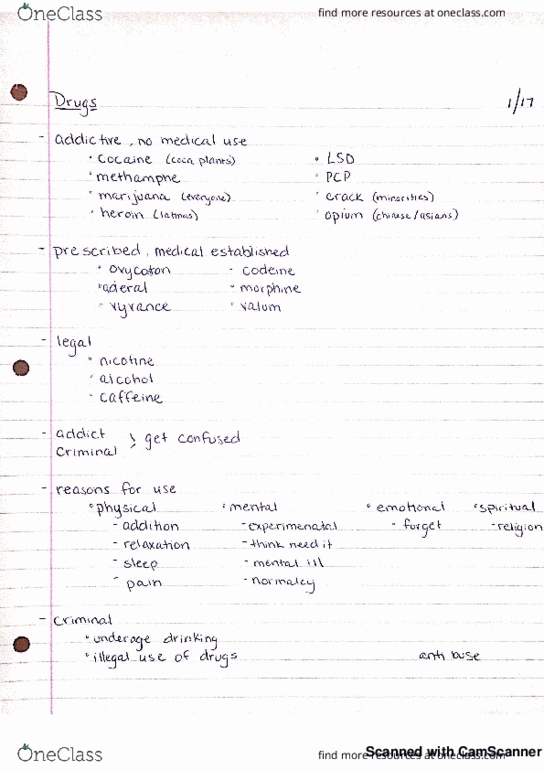 OneClass
find more resources at oneclass.com
Drugs
1/17
- addictive, no medical use
• cocaine (coca plants)
• LSD
• methamphe
• PCP
• marijuana (everyone)
• crack (minorities)
• heroin (latinos)
• opium (chinese/asians)
- prescribed, medical established
• oxycoton
- codeine
• aderal
- morphine
• vyvance
- valum
- legal
• nicotine
• alcohol
• caffeine
- addict
criminal
} get confused
- reasons for use
• physical
• mental
• emotional
• spiritual
- addition
- experimenatal
- forget
- religion
- relaxation
- think need it
- sleep
- mental ill
- pain
- normalcy
- criminal
• underage drinking
• illegal use of drugs
anti buse
OneClass
find more resources at oneclass.com
Scanned with CamScanner